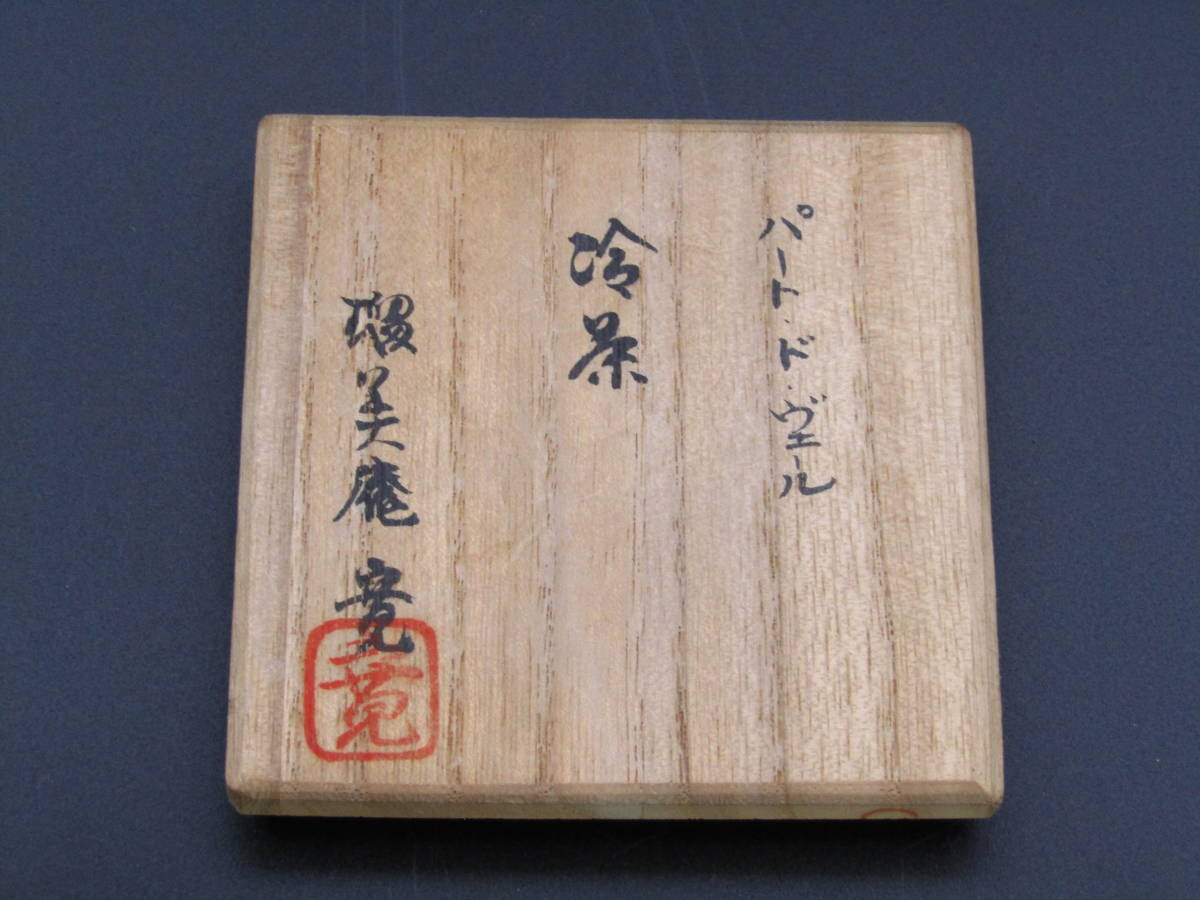 パート・ド・ヴェール
冷茶
瑠美庵